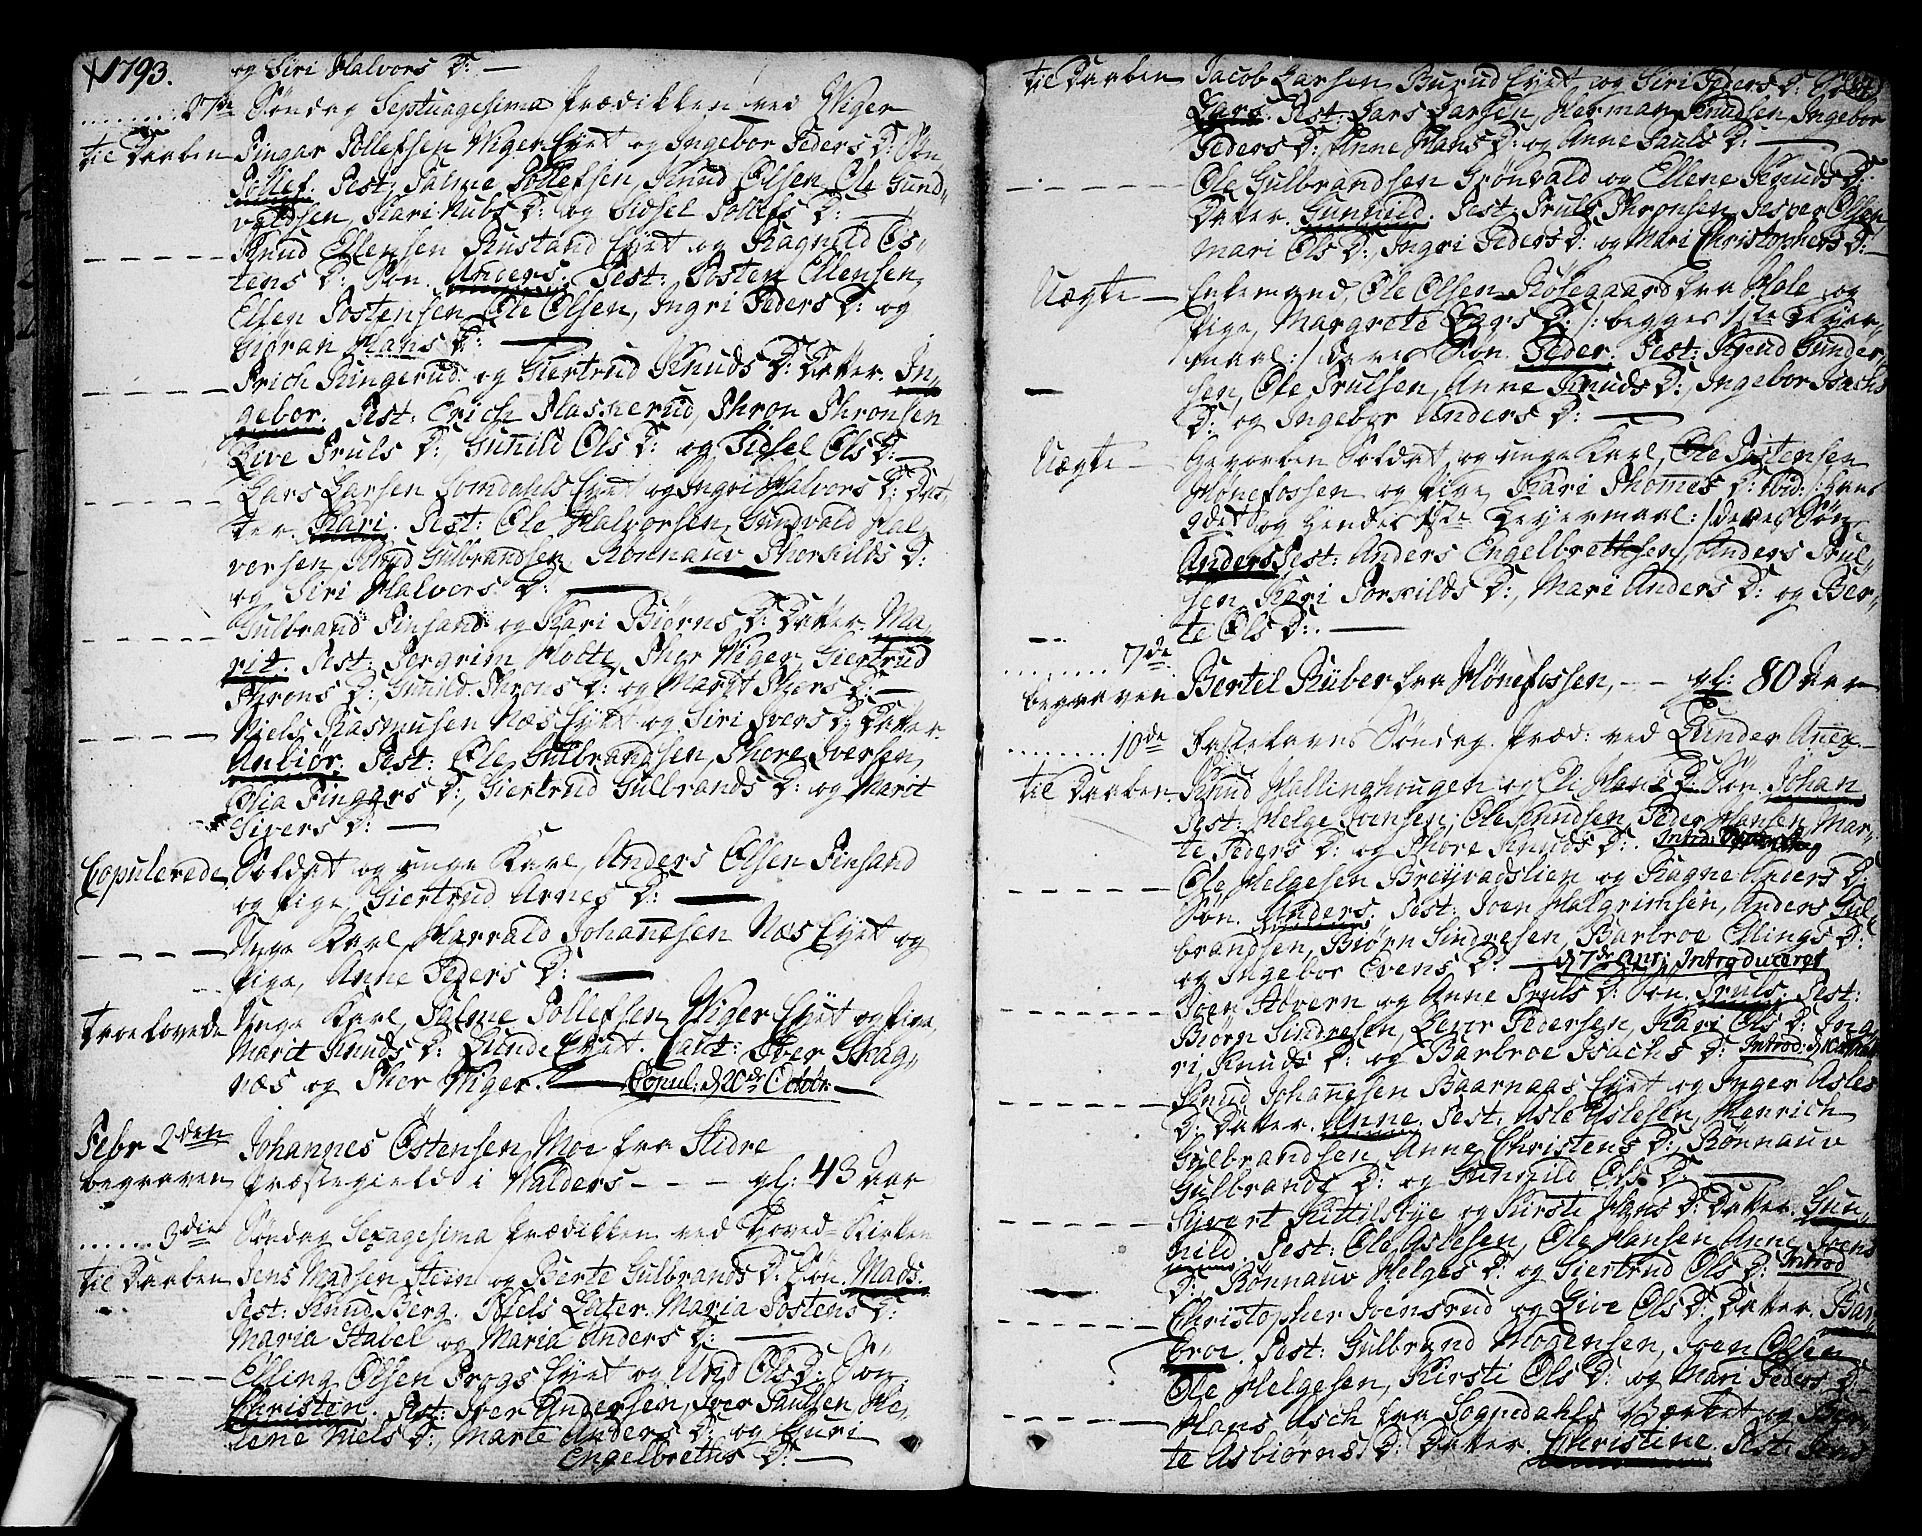 1793.
og Siri Halvors D: —
27de Søndag Septuagesima Prædikken ved Wiger
til Daaben Tingar Tollefsen Wiger Eyet og Ingebor Peders D: Søn
Tollef. Test: Palme Tollefsen, Knud Olsen, Ole Gund-
valdsen, Kari Nubs D: og Sidsel Tollefs D: —
Knud Ellensen Rustand Eyet og Ragnild Os-
tens D: Søn. Anders. Test: Tosten Ellensen,
Ellen Tostensen, Ole Olsen, Ingri Peders D: og
Giøran Hans D: —
Erich Ringerud og Giertrud Knuds D: Datter. In-
gebor. Test: Erich Plasserud, Thron Thronsen
Live Truls D:, Gunild Ols D: og Sidsel Ols D: —
Lars Larsen Somdahls Eyet og Ingri Halvors D: Dat-
ter. Kari. Test: Ole Halvorsen, Gundvald Hal-
vorsen, Knud Gulbrandsen, Rønnauv Thorkilds D:
og Siri Halvors D: —
Gulbrand Finsand og Kari Biørns D: Datter. Ma-
rit. Test: Torgrim Holte, Ther Wiger, Giertrud
Throns D:, Gunild Throns D: og Marit Thors D: —
Niels Rasmusen Næs Eyet og Siri Ivers D: Datter.
Anbiør. Test: Ole Gulbrandsen, Thore Iversen,
Olia Fingars D:, Giertrud Gulbrands D: og Marit
Sivers D: —
Copulerede Soldat og unge Karl, Anders Olsen Finsand
og Pige, Giertrud Arnes D: —
Unge Karl, Harrald Johannesen Næs Eyet og
Pige, Anne Peders D: —
Troelovede Unge Karl, Palme Tollefsen Wiger Eyet og Pige,
Marit Knuds D: Lunde Eyet. Caut: Iver Skag-
næs og Ther Wiger. — Copul: d 20de Octobr: —
Febr 2den Johannes Østensen Moe fra Slidre
begraven Præstegield i Walders - - - gl: 43 Aar
3die Søndag Sexagesima Prædikken ved Hoved-Kirken
til Daaben Jens Madsen Steen og Berte Gulbrands D: Søn. Mads.
Test: Knud Berg, Niels Later, Maria Tostens D:
Maria Stabel og Maria Anders D: —
Elling Olsen Trogs Eyet og Und Ols D: Søn.
Christen. Test: Iver Andersen, Iver Paulsen, He-
lene Niels D:, Marte Anders D: og Guri
Engelbrethts D: —
til Daaben Jacob Larsen Burud Eyet og Siri Peders D: Søn
Lars. Test: Lars Larsen, Herman Knudsen, Ingebor
Peders D:, Anne Hans D: og Anne Pauls D: —
Ole Gulbrandsen Grønvald og Ellene Knuds D:
Datter. Gunnild. Test: Truls Thronsen, Jesper Olsen,
Mari Ols D:, Ingri Peders D: og Mari Christophers D: —
Uægte — Enkemand, Ole Olsen Røsegaard fra Hole og
Pige, Margrete Lars D: /: begges 1ste Leyer-
maal :/ deres Søn. Peder. Test: Knud Gunder-
sen, Ole Trulsen, Anne Knuds D:, Ingebor Isachs
D: og Ingebor Anders D: —
Uægte — Gevorben Soldat og unge Karl, Ole Tostensen
Hønefossen og Pige, Kari Thomes D: ibid: /: hans
2det og hendes 1ste Leyermaal :/ deres Søn
Anders Test: Anders Engelbrethsen, Anders Trul-
sen, Kari Torkilds D:, Mari Anders D: og Ber-
te Ols D: —
7de
begraven Bertel Ruber fra Hønefossen, - - gl: 80 Aar
10de Fastelavns Søndag Præd: ved Lunder Anex. —
til Daaben. Knud Hallinghougen og Eli Hans D: Søn. Johan
Test: Helge Joensen, Ole Knudsen, Peder Hansen, Mar-
te Peders D: og Thore Knuds D: Introd:
Ole Helgesen Breyvadslien og Ragne Anders D:
Søn. Anders. Test: Joen Halgrimsen, Anders Gul-
brandsen, Biørn Sindresen, Barbroe Ellings D:
og Ingebor Evens D: — d 7de Apr: Introduceret
Joen Støvern og Anne Truls D: Søn. Truls. Test:
Biørn Sindresen, Levor Pedersen, Kari Ols D: Ing-
ri Knuds D: og Barbroe Isachs D: Introd:
Knud Johannesen Baarnaas Eyet og Inger Asles
D: Datter. Anne. Test: Asle Aslesen, Henrich
Gulbrandsen, Anne Christens D:, Rønnauv
Gulbrands D: og Gunnild Ols D: —
Syvert Kittilsbye og Kirsti Hans D: Datter. Gun-
nild. Test: Ole Aslesen, Ole Hansen, Anne Joens
D:, Rønnauv Helges D: og Giertrud Ols D: Introd
Christopher Joensrud og Live Ols D: Datter. Bar-
broe. Test: Gulbrand Mogensen, Joen Olsen
Ole Helgesen, Kirsti Ols D: og Mari Peders D: —
Hans Asch fra Sognedahls Værket og Ber-
te Asbiørns D: Datter. Christine. Test: Jens